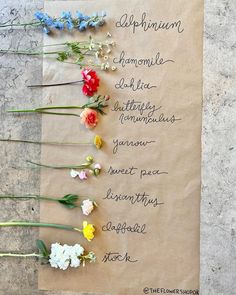 delphinium
chamomile
dahlia
butterfly
ranunculus
yarrow
sweet pea
lisianthus
daffodil
stock
@THEFLOWERSHOPOK